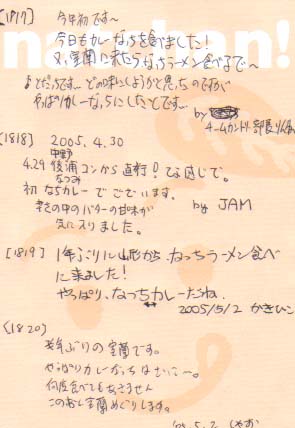 [1817] 今年初です〜
今日もカレーなっちを食べました!
又、室蘭に来たらなっちラーメン食べるぞ〜
まよったです… どの味にしようかと思ったのですが
やっぱりカレーなっちにしたとです…
by
チームカントリー部長
[1818] 2005.4.30
中野
4.29 後浦コンから直行!な感じで。
なつみ
初なちカレーでございます。
辛さの中のバターの甘味が
気に入りました。
by JAM
[1819] 1年ぶりに山形からなっちラーメン食べ
に来ました!
やっぱり、なっちカレーだね。
2005/5/2 かきひこ
[1820]
半年ぶりの室蘭です。
やっぱりカレーなっちはさいこー。
何度食べてもあきません
このあと室蘭めぐりします。
'05.5.2
nacchan!